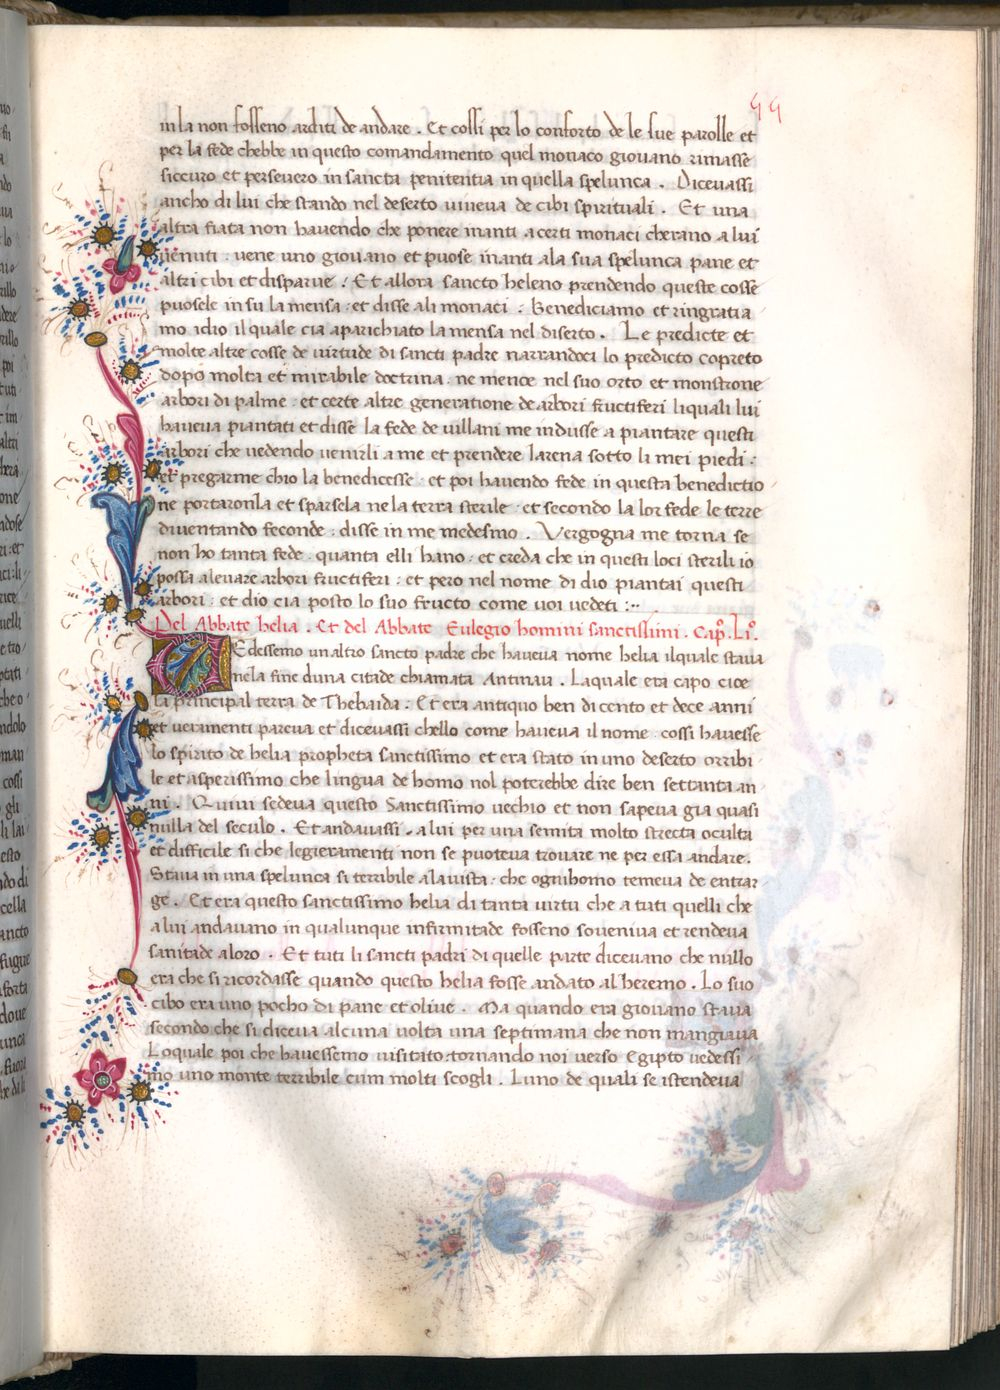 55
in la non fosseno arditi de andare . Et cossi per lo conforto de le sue parolle et
per la fede chebbe in questo comandamento quel monaco giovano rimasse
siccuro et persevero in sancta penitentia in quella spelunca . Dicevassi
ancho di lui che stando nel deserto viveva de cibi spirituali . Et una
altra fiata non havendo che ponere inanti acerti monaci cherano a lui
venuti : vene uno giovano et puose inanti ala sua spelunca pane et
altri cibi et disparve : Et allora sancto heleno prendendo queste cosse
puosele in su la mensa : et disse ali monaci : Benediciamo et ringratia
mo idio il quale cia aparichiato la mensa nel diserto . Le predicte et
molte altre cosse de virtude di sancti padre narrandoci lo predicto copreto
dopo molta et mirabile doctrina : ne mence nel suo orto et monstrone
arbori di palme : et certe altre generatione de arbori fructiferi liquali lui
haveva piantati et disse la fede de villani me indusse a piantare questi
arbori che vedendo venirli a me et prendere larena sotto li mei piedi :
et pregarme chio la benedicesse : et poi havendo fede in questa benedictio
ne portaronla et sparsela ne la terra sterile : et secondo la lor fede le terre
diventando feconde : disse in me medesmo . Vergogna me torna se
non ho tanta fede : quanta elli hano : et creda che in questi loci sterili io
possa alevare arbori fructiferi : et pero nel nome di dio piantai questi
arbori : et dio cia posto lo suo fructo come voi vedeti :~
Del Abbate helia . Et del Abbate Eulegio homini sanctissimi . Capº. Liº.
Edessemo un altro sancto padre che haveva nome helia il quale stava
ne la fine duna citade chiamata Antinau . Laquale era capo cioe
la principal terra de Thebaida : Et era antiquo ben di cento et dece anni
et veramenti pareva et dicevassi chello come haveva il nome : cossi havesse
lo spirito de helia propheta sanctissimo et era stato in uno deserto orribi
le et asperissimo che lingua de homo nol poterebbe dire ben settanta an
ni . Quivi sedeva questo Sanctissimo vechio et non sapeva gia quasi
nulla del seculo . Et andavassi . a lui per una semita molto strecta oculta
et difficile si che legieramenti non se puoteva trovare ne per essa andare .
Stava in una spelunca si terribile ala vista : che ognihomo temeva de entrar
ge . Et era questo sanctissimo helia di tanta virtu che a tuti quelli che
a lui andavano in qualunque infirmitade fosseno soveniva et rendeva
sanitade aloro . Et tuti li sancti padri di quelle parte dicevano che nullo
era che si ricordasse quando questo helia fosse andato al heremo . Lo suo
cibo era uno pocho di pane et olive . Ma quando era giovano stava
secondo che si diceva alcuna volta una septimana che non mangiava
Loquale poi che havessemo visitato : tornando noi verso Egipto vedessi
mo uno monte terribile cum molti scogli . Luno de quali se istendeva